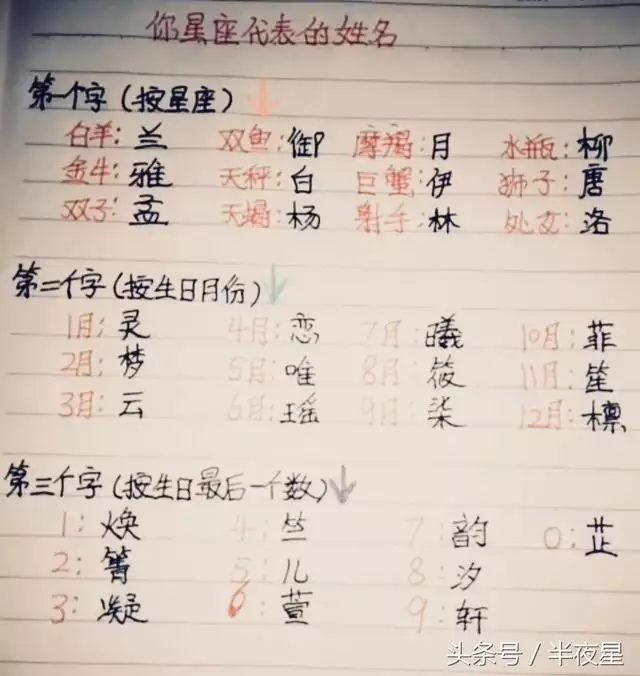 你星座代表的姓名
第一个字（按星座）
白羊：兰 双鱼：御 摩羯：月 水瓶：柳
金牛：雅 天秤：白 巨蟹：伊 狮子：唐
双子：孟 天蝎：杨 射手：林 处女：洛
第二个字（按生日月份）
1月：灵 4月：恋 7月：曦 10月：菲
2月：梦 5月：唯 8月：筱 11月：笙
3月：云 6月：瑶 9月：柒 12月：檩
第三个字（按生日最后一个数）
1：焕 4：竺 7：韵 0：芷
2：箐 5：儿 8：汐
3：凝 6：萱 9：轩
头条号 / 半夜星